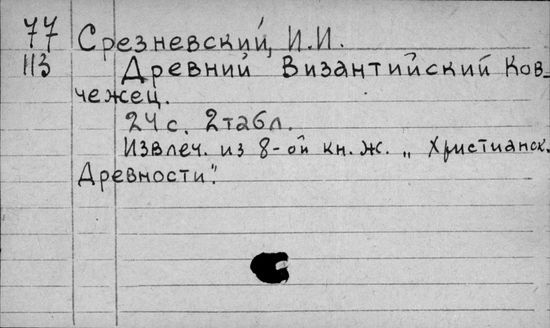 77 Срезневский, И.И.
113 Древний Византийский Ков-
чежец.
24 с. 2 табл.
Извлеч. из 8-ой кн. ж. „Христианск.
Древности".